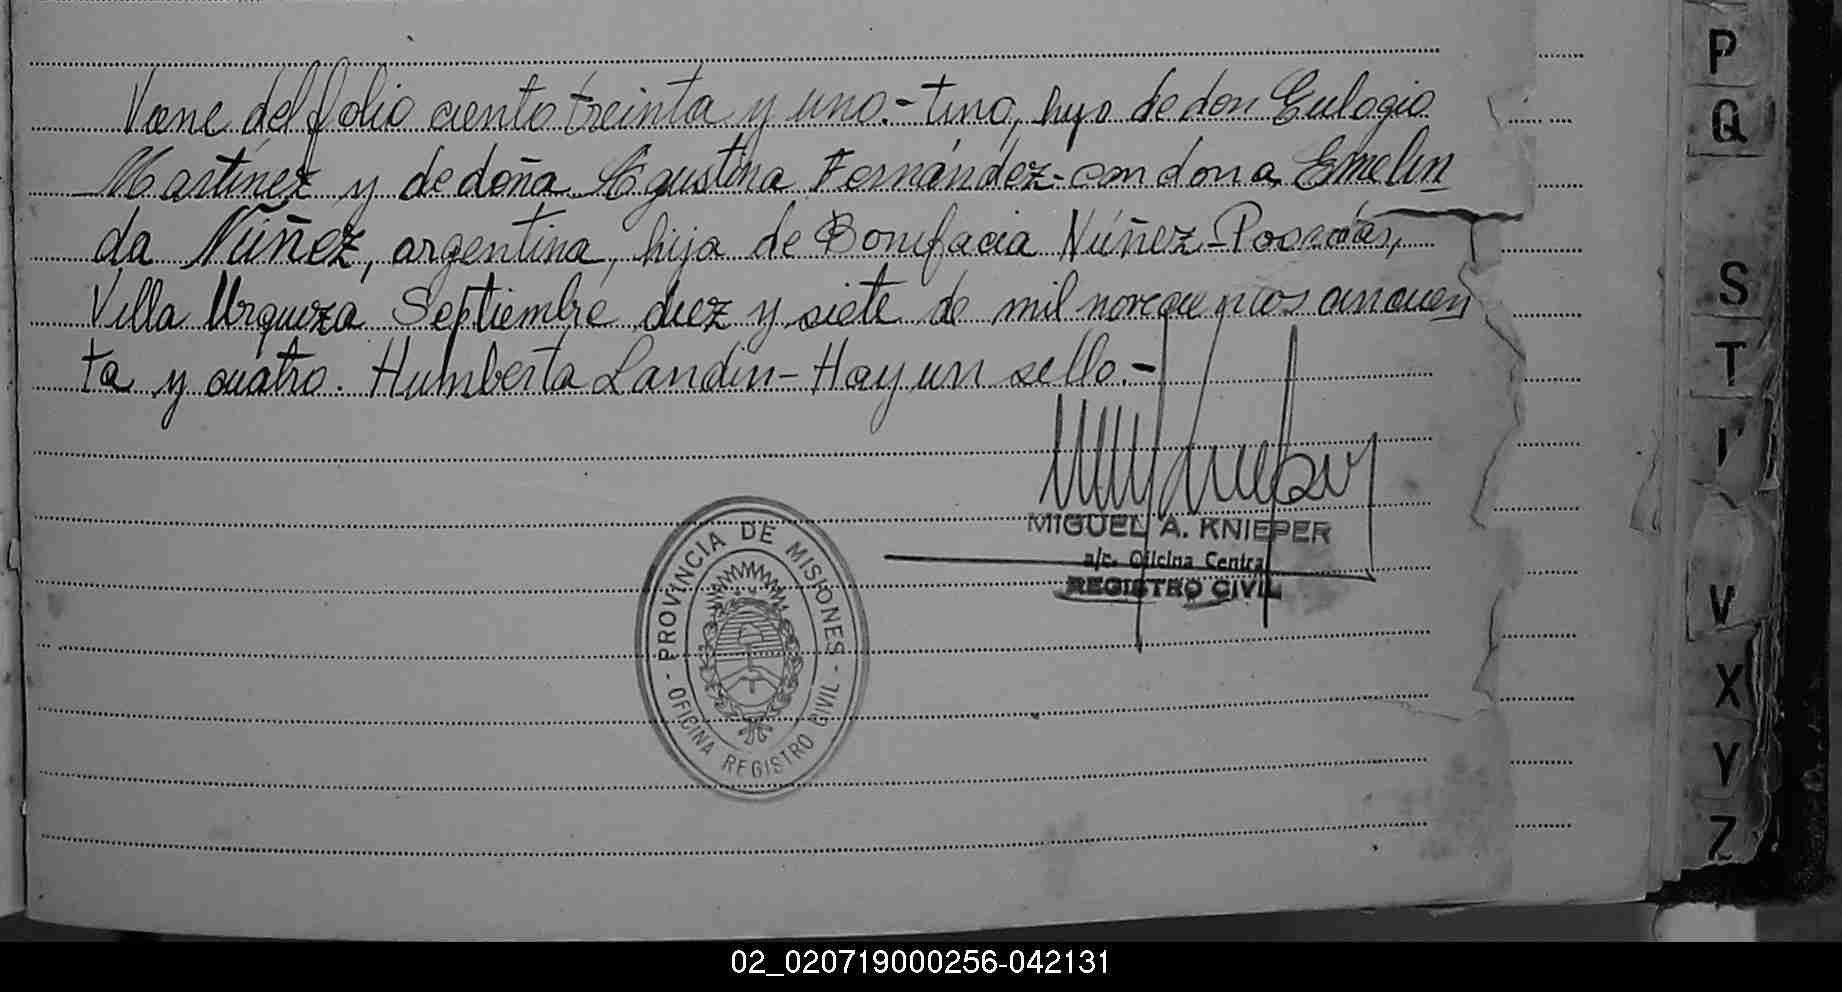 Viene del folio ciento treinta y uno.- tino, hijo de don Eulogio
Martínez y de doña Agustina Fernández - con dona Emelin
da Núñez, argentina, hija de Bonifacia Núñez - Posadas,
Villa Urquiza Septiembre diez y siete de mil novecientos cincuen
ta y cuatro. Humberta Landin - Hay un sello.-
MIGUEL A. KNIEPER
a/c. Oficina Central
REGISTRO CIVIL
PROVINCIA DE MISIONES
- OFICINA REGISTRO CIVIL -
P
Q
S
T
V
X
Y
Z
02_020719000256-042131